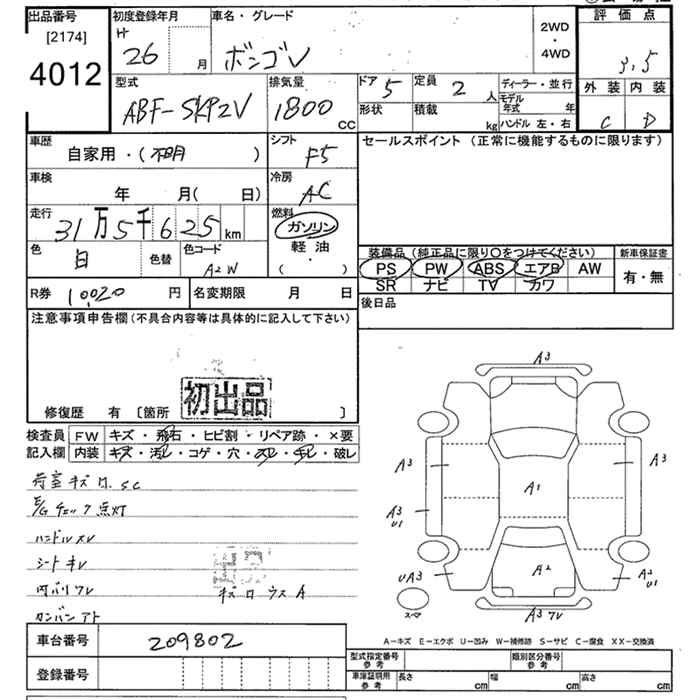 出品番号
[2174]
4012
初度登録年月
H
26 月
車名・グレード
ボンゴV
2WD
・
4WD
評価点
3.5
型式
ABF-SKP2V
排気量
1800 CC
ドア 5
定員 2 人
形状
積載 kg
ディーラー・並行
モデル年式 年
ハンドル 左・右
外装 内装
C D
車歴
自家用・(不明 )
シフト
F5
セールスポイント (正常に機能するものに限ります)
車検
年 月( 日)
冷房
AC
走行
31万5千625 km
燃料
ガソリン
軽油
( ・ )
色
白
色替
色コード
A2W
装備品 (純正品に限り〇をつけてください)
PS PW ABS エアB AW
SR ナビ TV カワ
新車保証書
有・無
R券 10,020 円
名変期限 月 日
後日品
注意事項申告欄(不具合内容等は具体的に記入して下さい)
初出品
修復歴 有 [箇所 ]
検査員 FW キズ・飛石・ヒビ割・リペア跡・×要
記入欄 内装 キズ・汚レ・コゲ・穴・スレ・キレ・破レ
荷室キズ ワ. SC
E/G チェック点灯
ハンドルスレ
シートキレ
内バリワレ
キズワウスA
カンバンアト
A3
A3
A3
A3
U1
A1
UA3
A2
A2
U1
スマ
A3ワレ
A-キズ E-エクボ U-凹み W-補修跡 S-サビ C-腐食 XX-交換済
車台番号 209802
登録番号
型式指定番号
参考
類別区分番号
参考
車庫証明用
参考
長さ cm
幅 cm
高さ cm